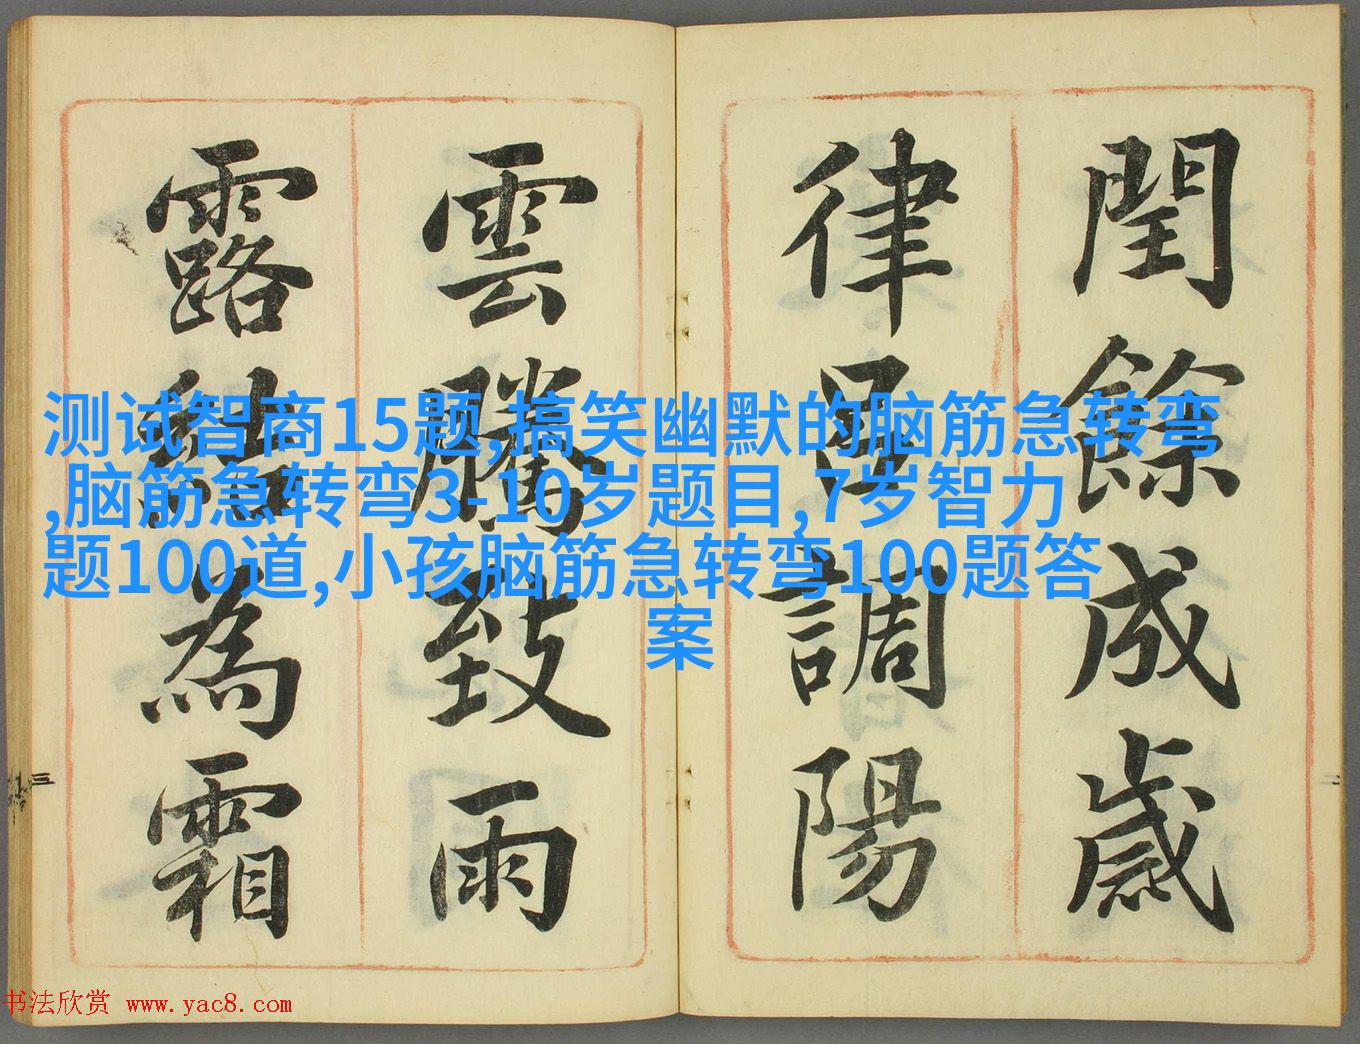 閏餘成歲
律呂調陽
雲騰致雨
露結為霜
三
测试智商15题,搞笑幽默的脑筋急转弯
,脑筋急转弯3-10岁题目,7岁智力
题100道,小孩脑筋急转弯100题答
案
书法欣赏 www.yac8.com